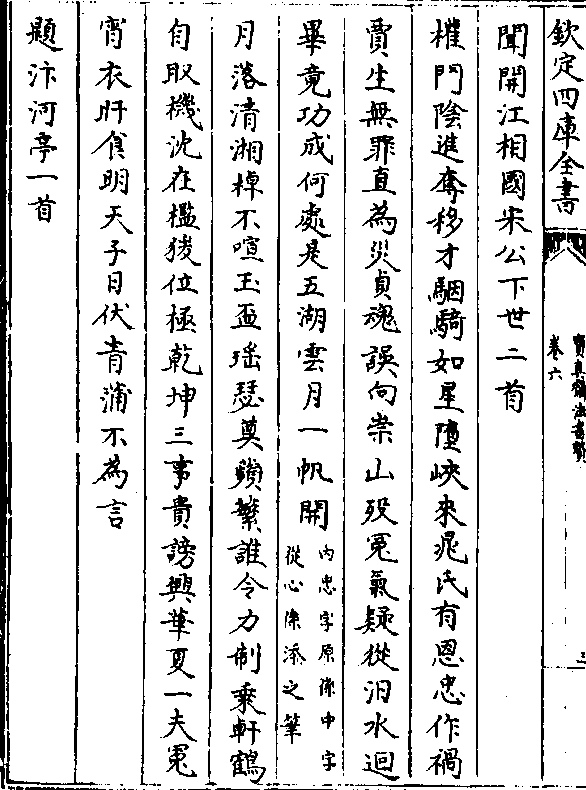 欽定四庫全書
寶真齋法書贊
卷六
三
聞開江相國宋公下世二首
榷門陰進奪移才駰騎如星墮峽來晁氏有恩忠作禍
賈生無罪直為災貞魂誤向崇山歿冤氣疑從汨水迴
畢竟功成何處是五湖雲月一帆開
內忠字原係中字
從心係添之筆
月落清湘棹不喧玉盃瑤瑟奠蘋蘩誰令力制乘軒鶴
自取機沈在檻猨位極乾坤三事貴謗興華夏一夫冤
宵衣旰食明天子日伏青蒲不為言
題汴河亭一首